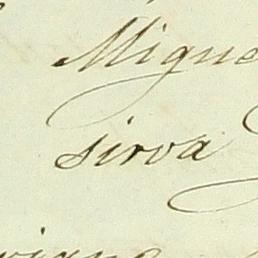 Migue
sirva